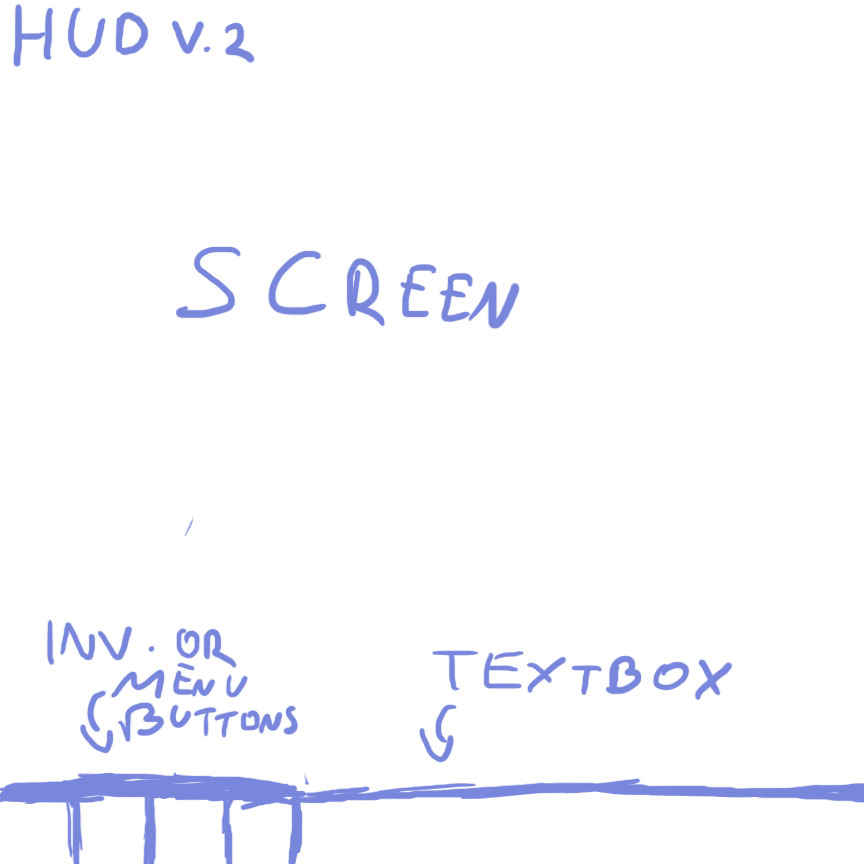 HUD V.2
SCREEN
INV. OR
MENU
BUTTONS
TEXTBOX